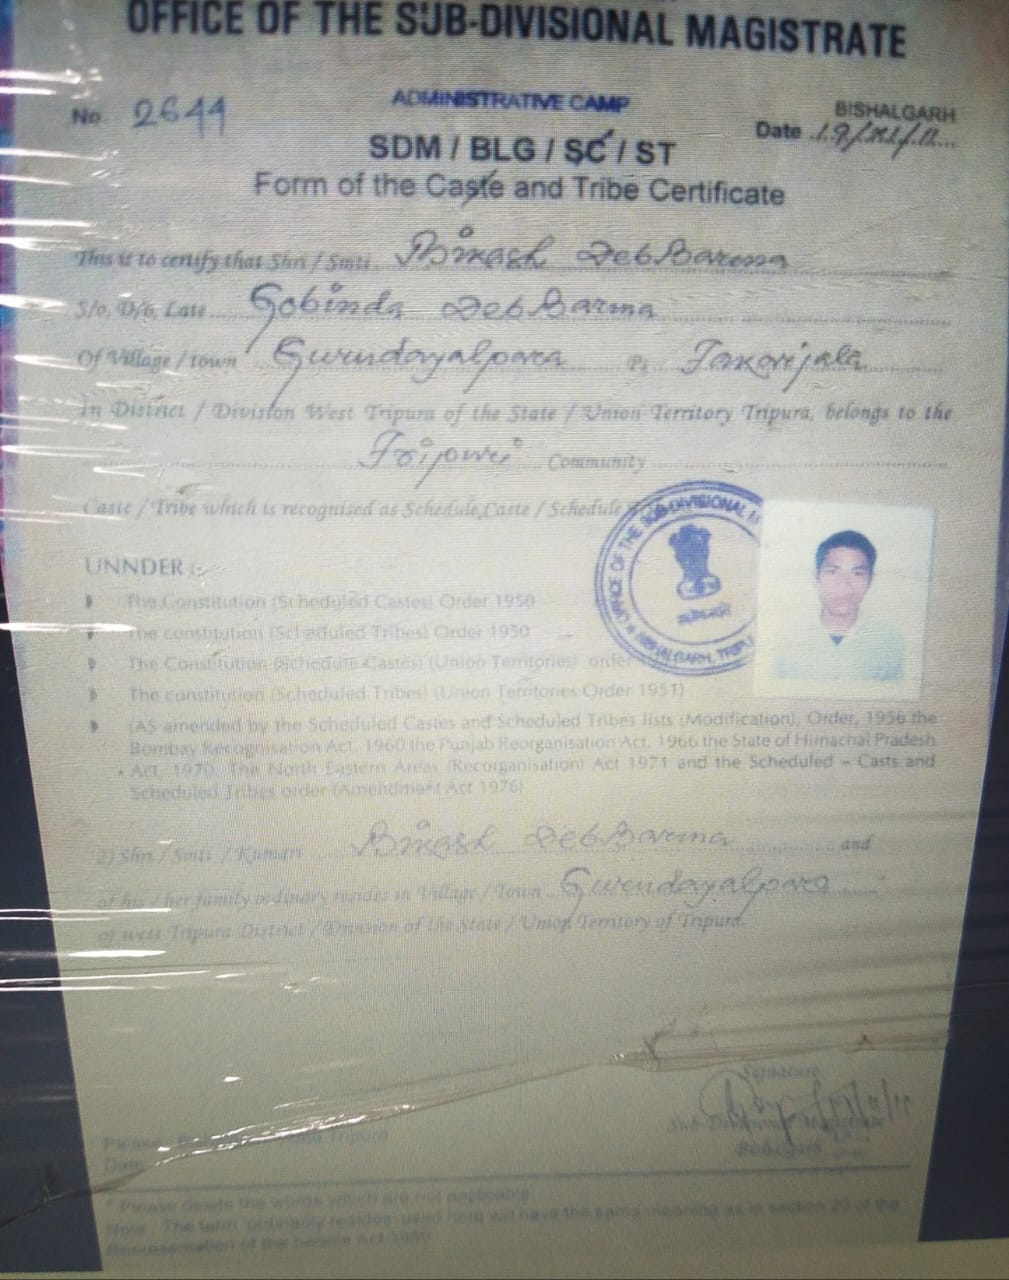 OFFICE OF THE SUB-DIVISIONAL MAGISTRATE
No. 2644
ADMINISTRATIVE CAMP
BISHALGARH
Date
SDM / BLG / SC / ST
Form of the Caste and Tribe Certificate
This is to certify that Shri / Smti Bikash DebBarma
S/o, D/o, Late Gobinda DebBarma
Of Village / town Gurudayalpara Ps Takarjala
In District / Division West Tripura of the State / Union Territory Tripura, belongs to the
Tripuri Community
Caste / Tribe which is recognised as Schedule Caste / Schedule
OFFICE OF THE SUB-DIVISIONAL
BISHALGARH, TRIPU
UNNDER :-
The Constitution (Scheduled Castes) Order 1950
The constitution (Scheduled Tribes) Order 1950
The Constitution (Schedule Castes) (Union Territories) order
The constitution (Scheduled Tribes) (Union Territories Order 1951)
(AS amended by the Scheduled Castes and Scheduled Tribes lists (Modification), Order, 1956 the
Bombay Recognisation Act, 1960 the Punjab Reorganisation Act. 1966 the State of Himachal Pradesh
Act, 1970. The North Eastern Areas (Recorganisation) Act 1971 and the Scheduled – Casts and
Scheduled Tribes order (Amendment Act 1976)
2) Shri / Smti / Kumari Bikash DebBarma and
of his / her family ordinary resides in Village / Town Gurudayalpara
of west Tripura District / Division of the State / Union Territory of Tripura.
Signature
Sub-Divisional Magistrate
Bishalgarh
Tripura
Date
* Please delete the words which are not applicable
Note : The term 'ordinarily resides' used here will have the same meaning as in section 20 of the
Representation of the people Act 1950